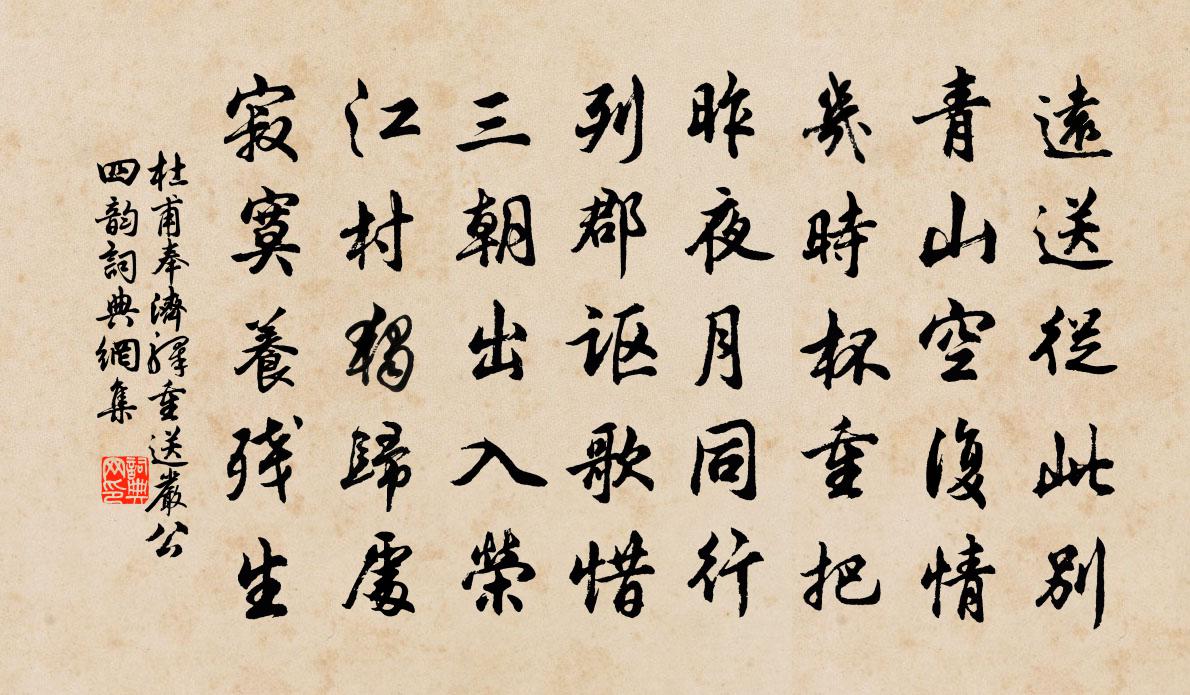 遠送從此別
青山空復情
幾時杯重把
昨夜月同行
列郡讴歌惜
三朝出入榮
江村獨歸處
寂寞養残生
杜甫奉濟驛重送嚴公
四韵詞典網集
詞典
网印